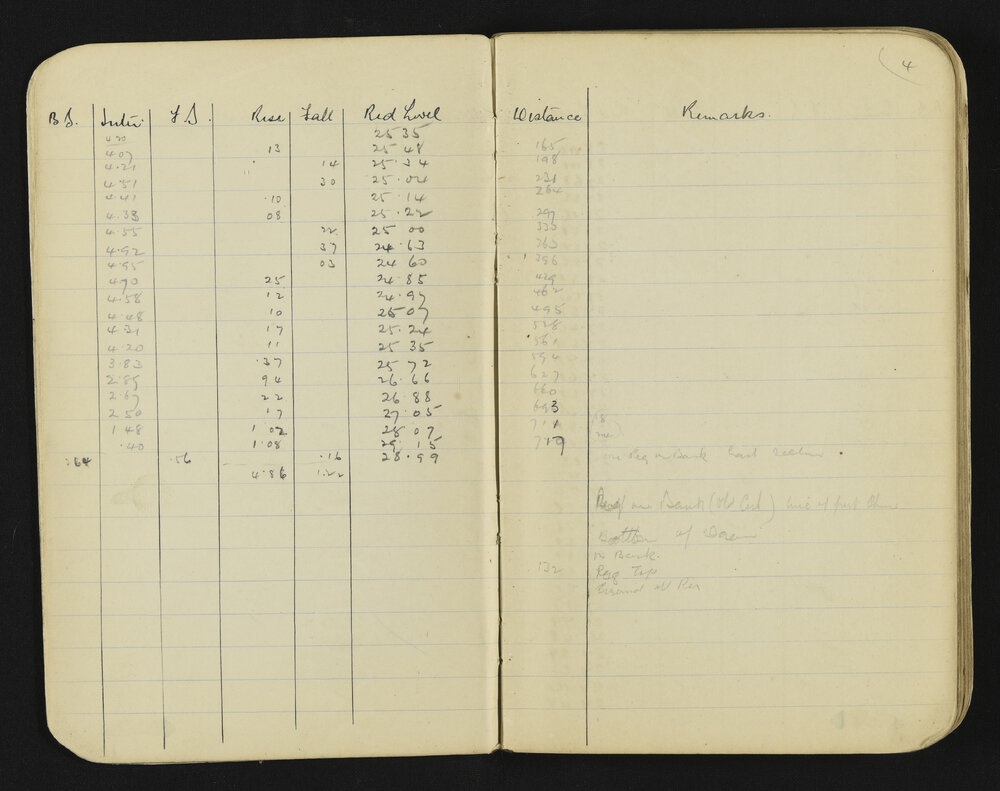 4
B S. Inter. F S. Rise Fall Red Level Distance Remarks.
4.20 25 35
4.07 13 25 48 165
4.21 14 25.34 198
4.51 30 25.04 231
4.41 .10 25.14 264
4.33 08 25.22 297
4.55 22 25 00 330
4.92 37 24.63 363
4.95 03 24 60 396
4.70 25 24.85 429
4.58 12 24.97 462
4.48 10 25 07 495
4.31 17 25.24 528
4.20 11 25 35 561
3.83 .37 25 72 594
2.89 94 26.66 627
2.67 22 26.88 660
2.50 17 27.05 693
1.48 1 02 28 07 711 18
.40 1.08 29.15 719
.56 .16 28.99 on Peg on Bank East
4.86 1.22
on Bank (Old Cut) line of
Bottom of Drain
on Bank.
132 Peg Top
Ground at Peg